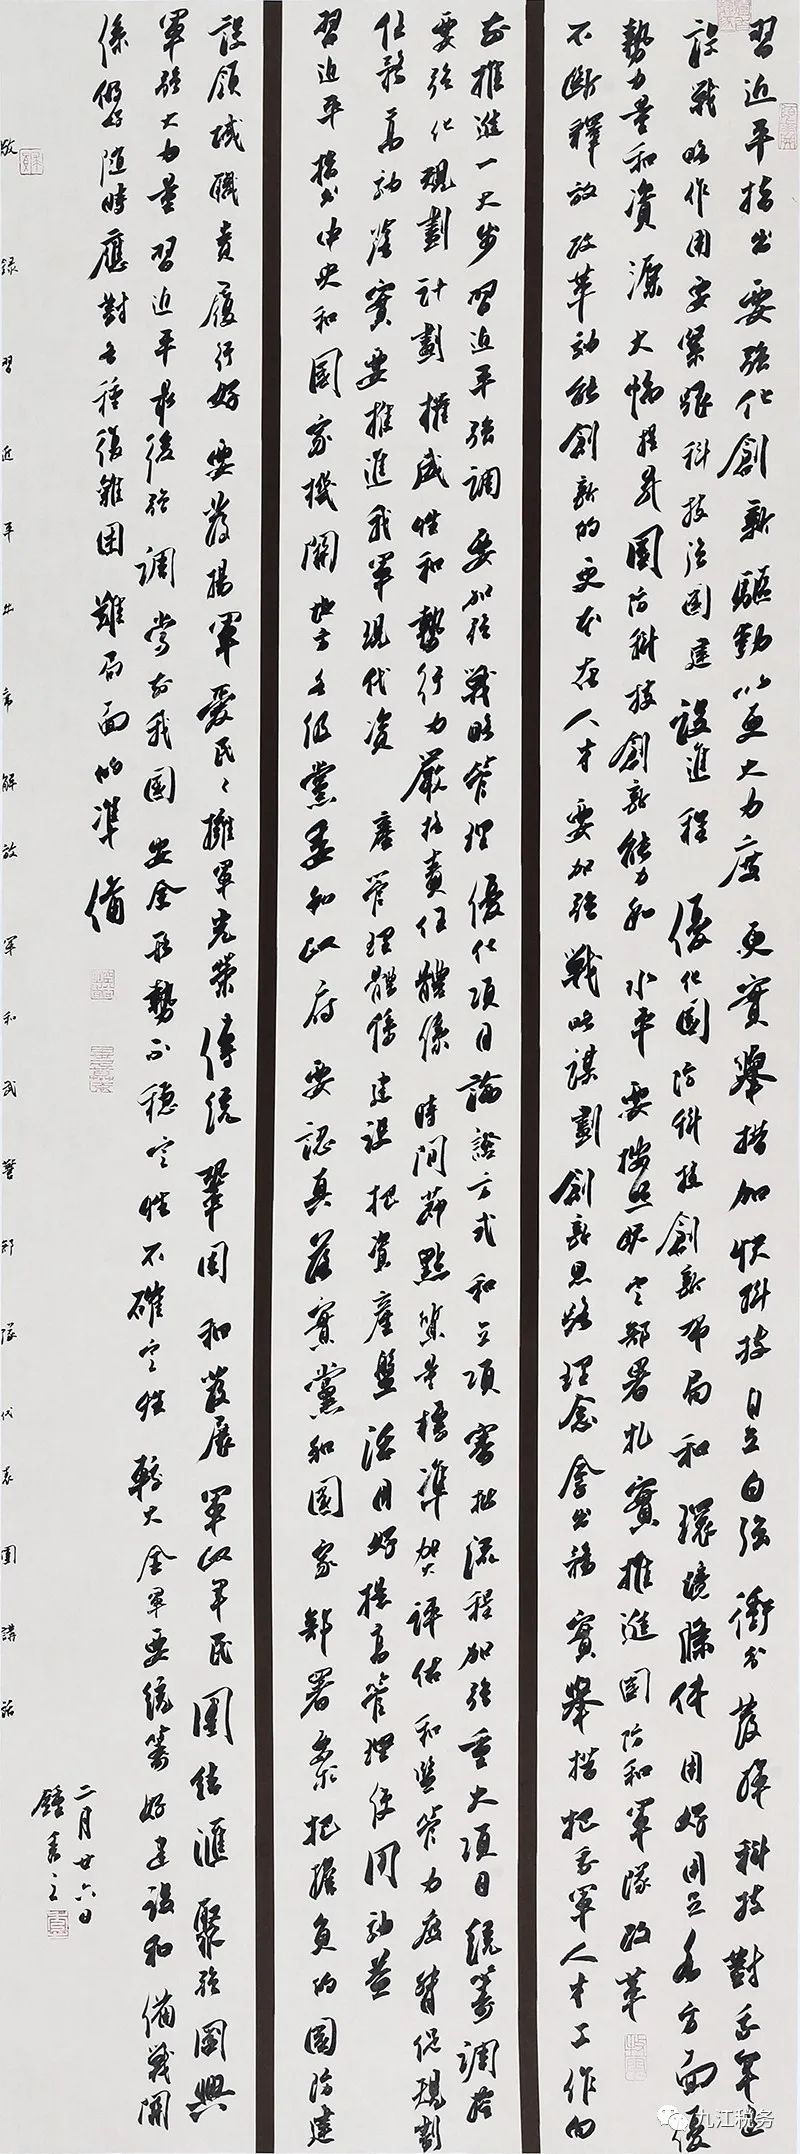 習近平指出要强化創新驅動以更大力度更實舉措加快科技自立自强衝出發揮科技對我軍建
設戰略作用要緊跟科技强國建設進程優化國防科技創新布局和環境條件用好用足各方面優
勢力量和資源大幅提升國防科技創新能力和水平要按照既定部署扎實推進國防和軍隊改革
不斷釋放改革動能創新的更本在人才要加强戰略謀劃創新思路理念拿出務實舉措把我軍人才工作向
前推進一大步習近平强調要加强戰略管理優化項目論證方式和立項審批流程加强重大項目統籌調控
要强化規劃計劃權威性和執行力嚴格責任體係時間莭點質量標準加大評估和監管力度督促規劃
任務高効落實要推進我軍現代資產管理體係建設把資產盤活用好提高管理使用効益
習近平指出中央和國家機關地方各级黨委和政府要認真落實黨和國家部署要求把擔負的國防建
設領域職責履行好要發揚軍愛民民擁軍光榮傳統鞏固和發展軍政軍民團結滙聚强國興
軍强大力量習近平最後强調當前我國安全形勢不穩定性不確定性較大全軍要統籌好建設和備戰關
係做好随時應對各種復雜困難局面的準備
敬録習近平主席解放軍和武警部隊代表團講話
二月廿六日
九江税务